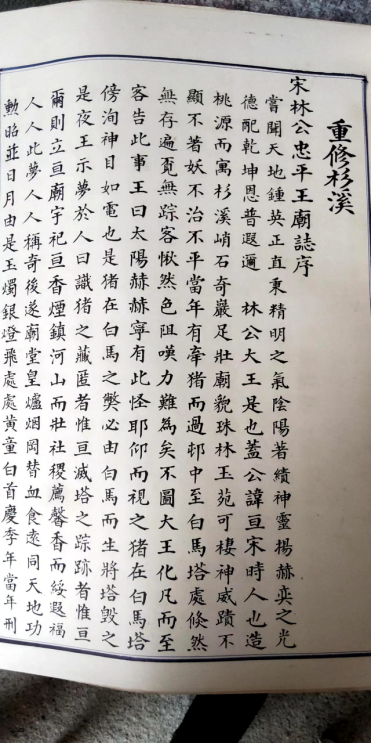 重修杉溪
宋林公忠平王廟誌序
嘗聞天地鍾英正直秉精明之氣陰陽著績神靈揚赫奕之光
德配乾坤恩普遐邇　林公大王是也蓋公諱亘宋時人也造
桃源而寓杉溪峭石奇巖足壯廟貌珠林玉苑可棲神威蹟不
顯不著妖不治不平當年有牽猪而過邨中至白馬塔處倐然
無存遍覔無踪客愀然色阻嘆力難為矣不圖大王化凡而至
客告此事王曰太陽赫赫寧有此怪耶仰而視之猪在白馬塔
傍洵神目如電也是猪在白馬之獘必由白馬而生將塔毀之
是夜王示夢於人曰識猪之藏匿者惟亘滅塔之踪跡者惟亘
爾則立亘廟宇祀亘香煙鎮河山而壯社稷薦馨香而綏遐福
人人此夢人人稱奇後遂廟堂皇爐烟罔替血食逺同天地功
勲昭並日月由是玉燭銀燈飛處處黄童白首慶季年當年刑